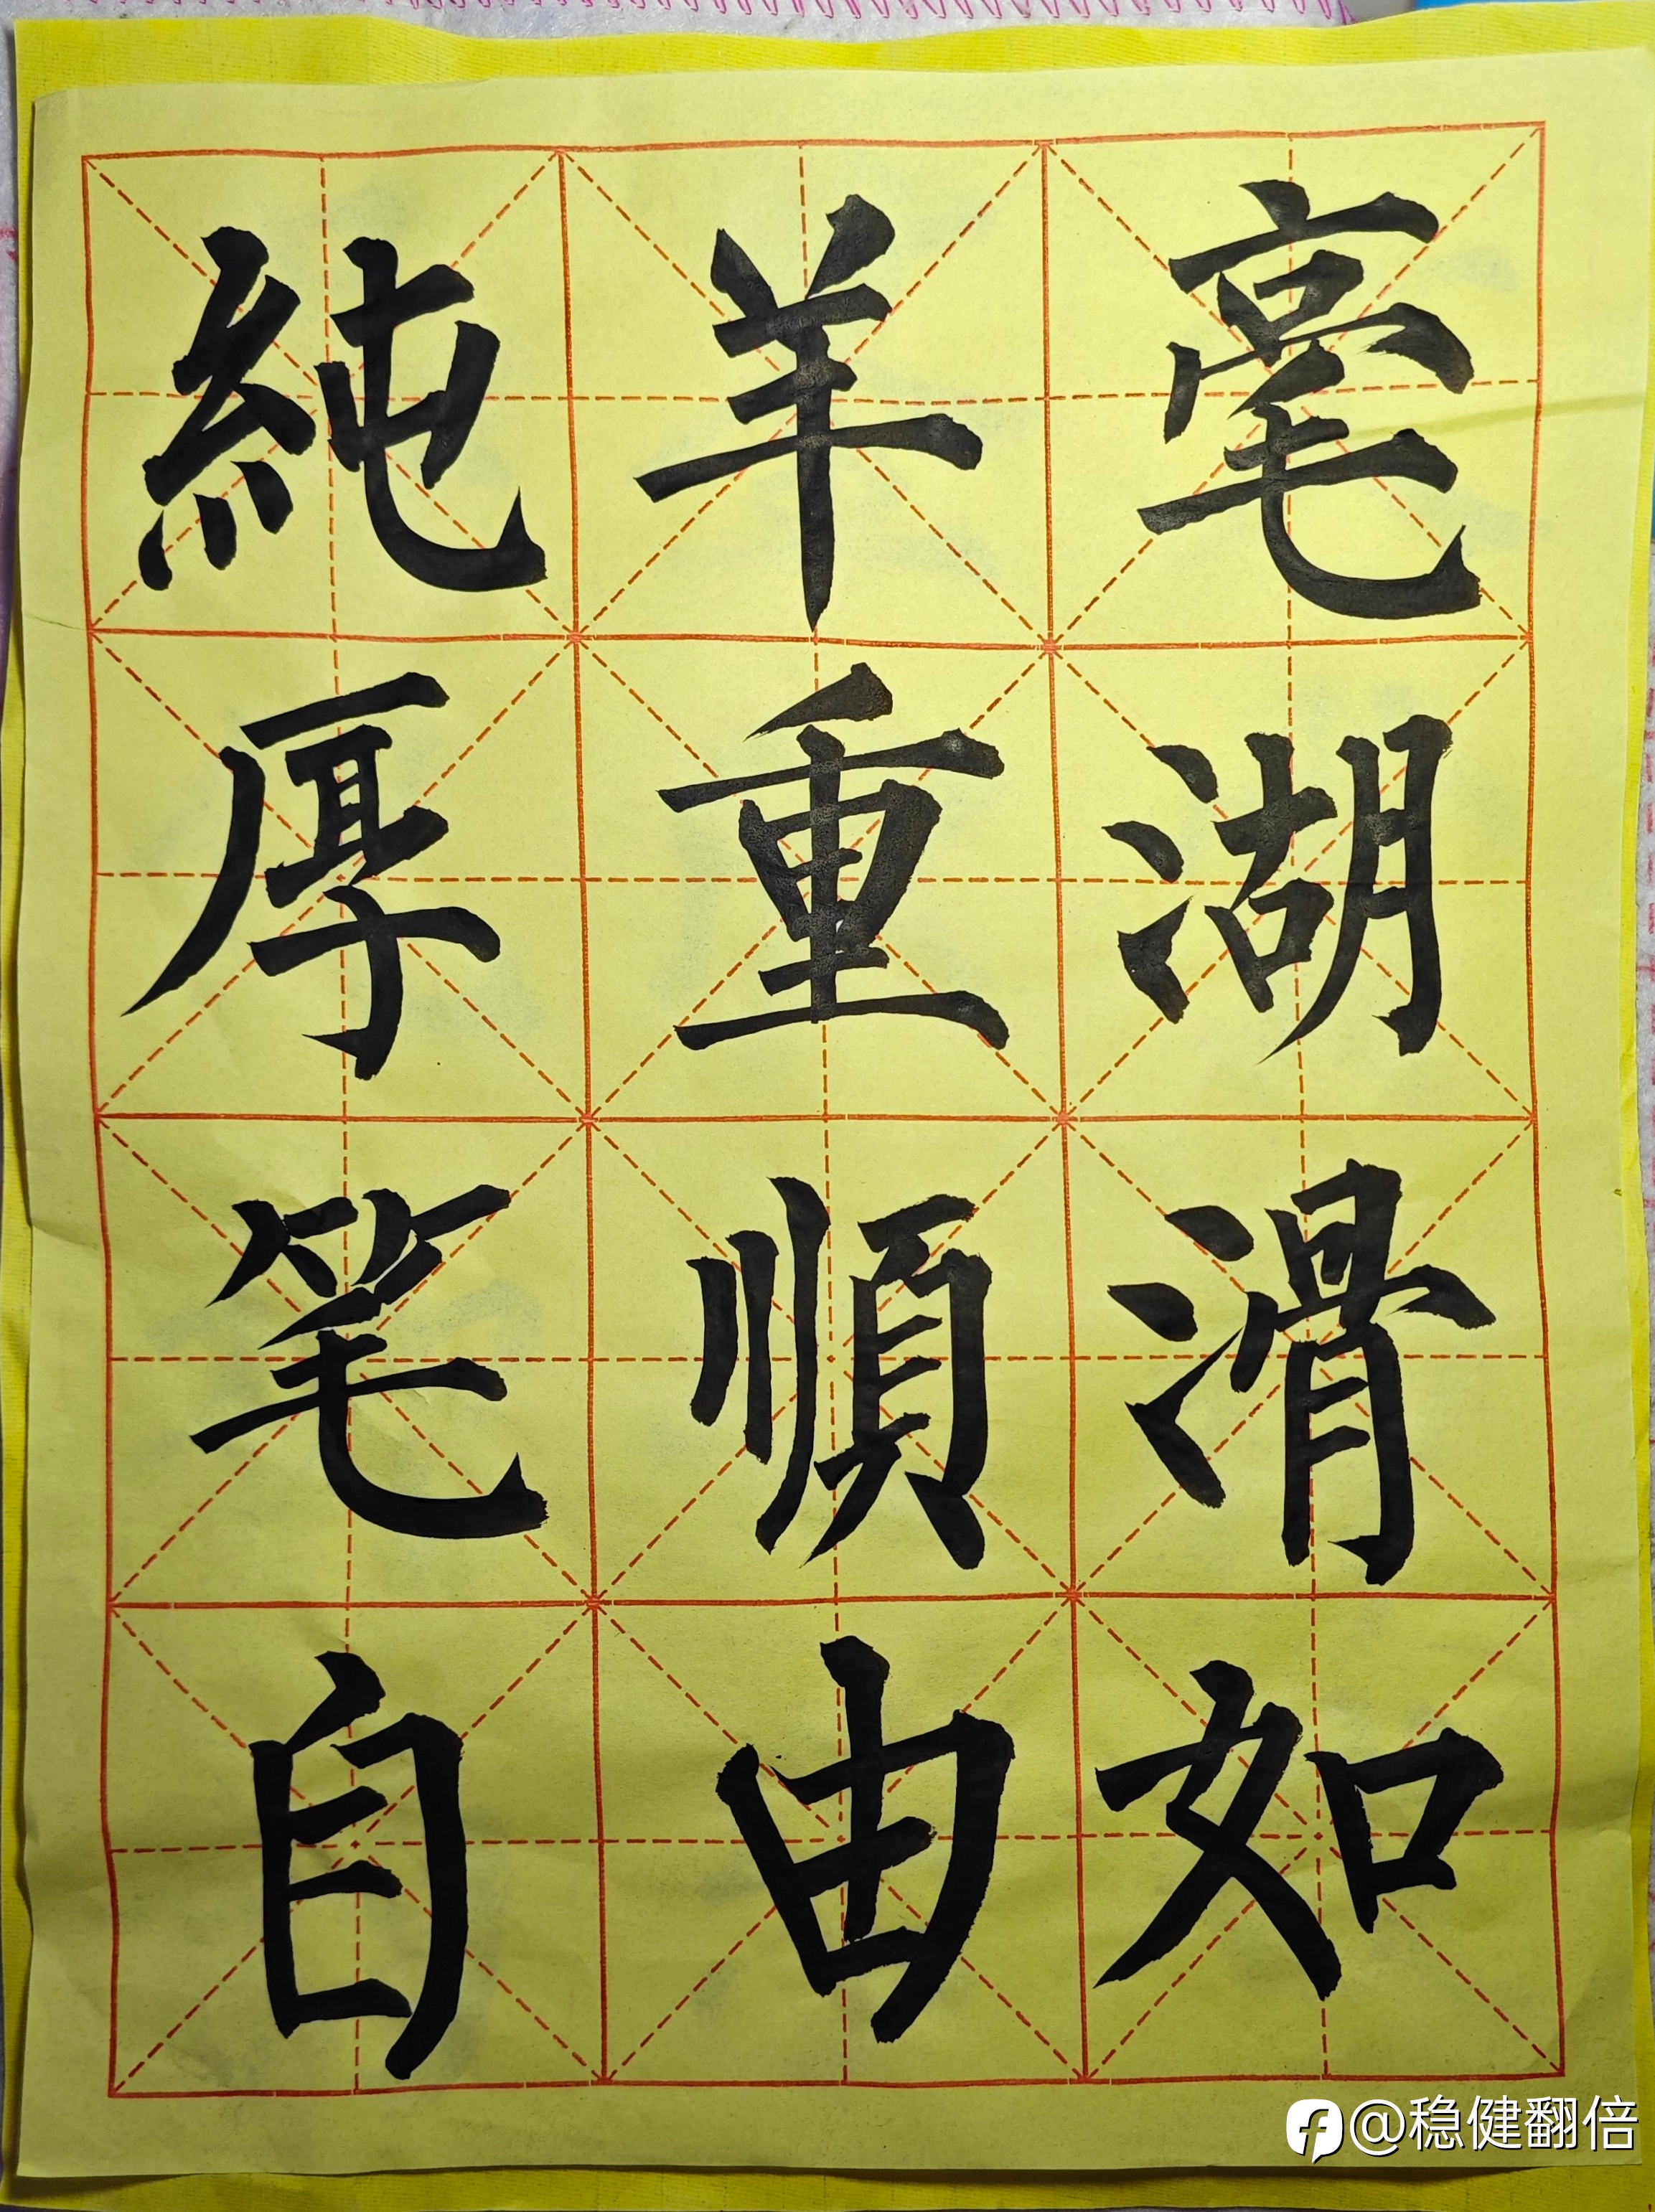 純羊毫
厚重湖
笔順滑
自由如
@稳健翻倍